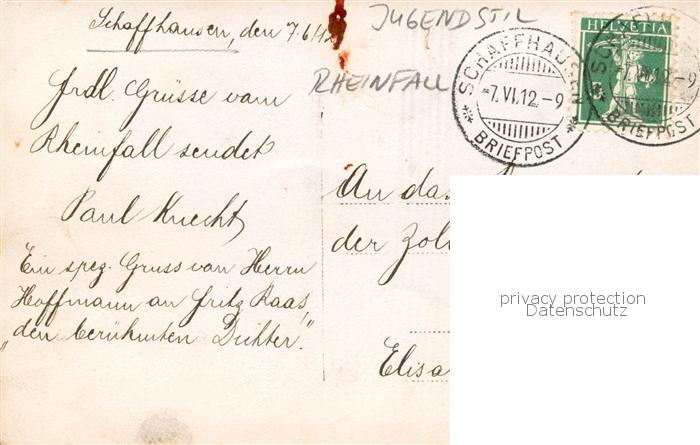 Schaffhausen, den 7.6.12
Frdl. Grüsse vom
Rheinfall sendet
Paul Knecht
Ein spez. Gruss von Herrn
Hoffmann an Fritz Raas,
„den berühmten Dichter."
JUGENDSTIL
RHEINFALL
SCHAFFHAUSEN
-7.VI.12.-9
BRIEFPOST
HELVETIA
BRIEFPOST
An das
der Zoll
Elisa
privacy protection
Datenschutz